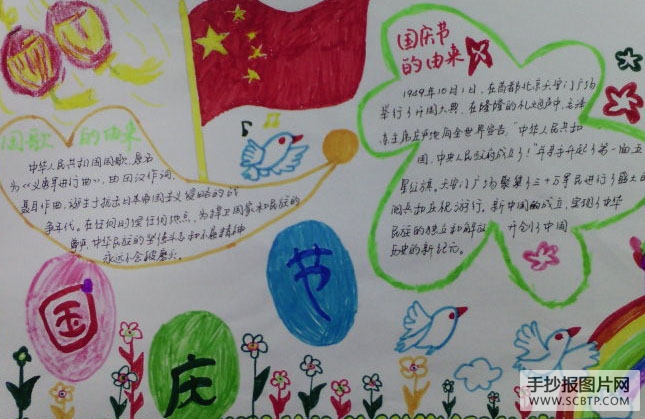 国歌的由来
中华人民共和国国歌,原名
为《义勇军进行曲》,由田汉作词,
聂耳作曲,诞生于抗击日本帝国主义侵略的战
争年代。在任何时候任何地点,为捍卫国家和民族的
尊严,中华民族的坚强斗志和不屈精神
永远不会被磨灭。
国庆节
的由来
1949年10月1日,在首都北京天安门广场
举行了开国大典,在隆隆的礼炮声中,
主席庄严地向全世界宣告,"中华人民共和
国,中央人民政府成立了!"并亲手升起了第一面五
星红旗。天安门广场聚集了三十万军民进行了盛大的
阅兵和庆祝游行。新中国的成立,实现了中华
民族的独立和解放 开创了中国
历史的新纪元。
国
庆
节
手抄报图片网
WWW.SCBTP.COM